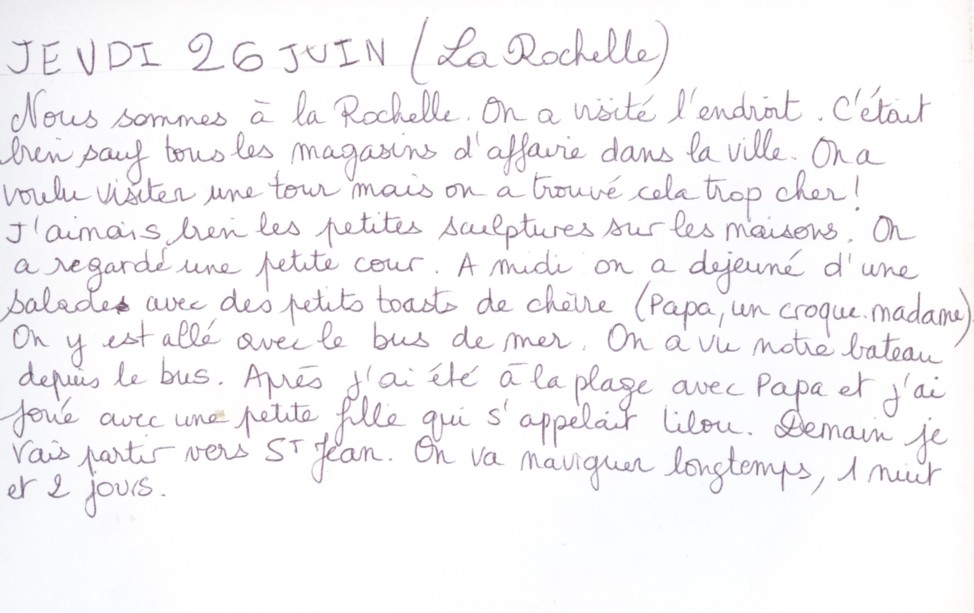 JEUDI 26 JUIN (La Rochelle)
Nous sommes à la Rochelle. On a visité l'endroit. C'était
bien sauf tous les magasins d'affaire dans la ville. On a
voulu visiter une tour mais on a trouvé cela trop cher!
J'aimais bien les petites sculptures sur les maisons. On
a regardé une petite cour. A midi on a dejeuné d'une
salade avec des petits toasts de chèvre (Papa, un croque.madame).
On y est allé avec le bus de mer. On a vu notre bateau
depuis le bus. Après j'ai été à la plage avec Papa et j'ai
joué avec une petite fille qui s'appelait Lilou. Demain je
vais partir vers St Jean. On va naviguer longtemps, 1 nuit
et 2 jours.